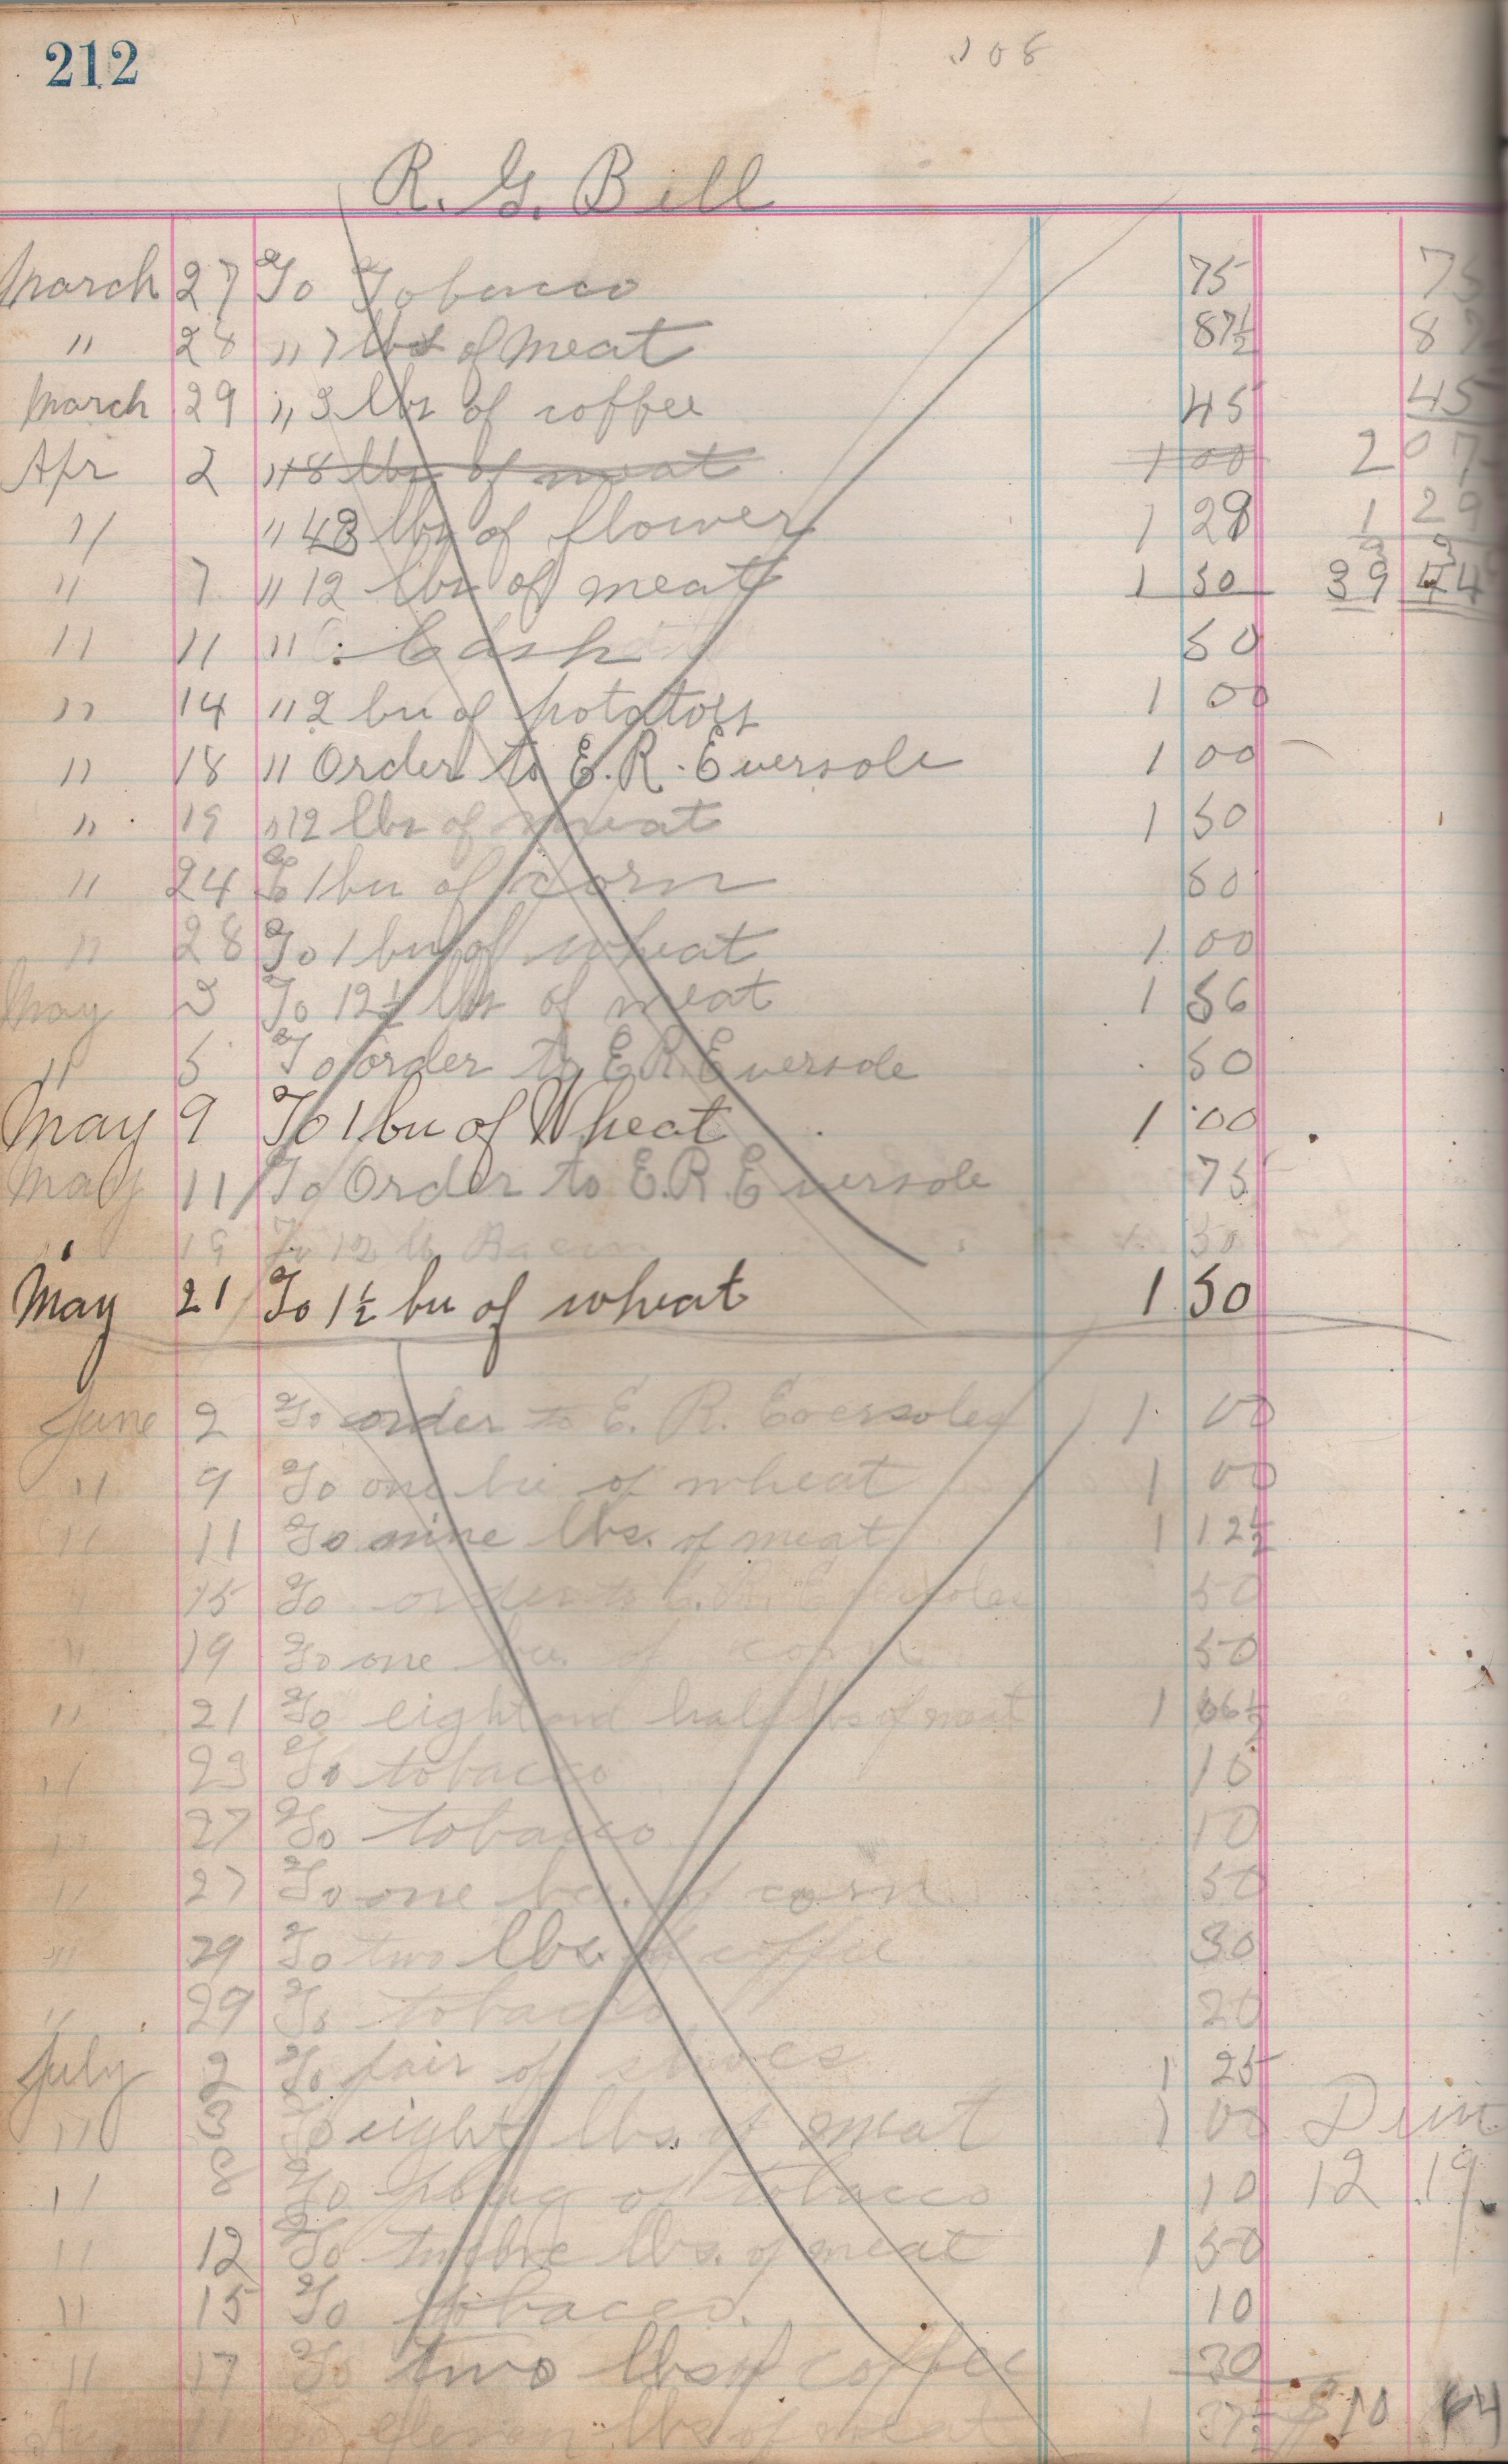 212
108
R. G. Bill
March 27 To Tobacco 75 75
" 28 " 7 lbs of meat 87½ 87
March 29 " 3 lbs of coffee 45 45
Apr 2 " 8 lbs of meat 1 00 2 07
" " 43 lbs of flower 1 29 1 29
" 7 " 12 lbs of meat 1 50
" 11 " Cash 50
" 14 " 2 bu of potatoes 1 00
" 18 " Order to E. R. Eversole 1 00
" 19 " 12 lbs of meat 1 50
" 24 To 1 bu of corn 50
" 28 To 1 bu of wheat 1 00
May 3 To 12½ lbs of meat 1 56
" 5 To order to E R Eversole 50
May 9 To 1 bu of Wheat 1 00
May 11 To Order to E. R. Eversole 75
" 19 To 12 lb 1 50
May 21 To 1½ bu of wheat 1 50
June 2 To order to E. R. Eversole 1 00
" 9 To one bu of wheat 1 00
" 11 To nine lbs. of meat 1 12½
" 15 To order to E. R. Eversole 50
" 19 To one bu. of corn 50
" 21 To eight and half lbs of meat 1
" 23 To tobacco 10
" 27 To tobacco 10
" 27 To one bu. of corn 50
" 29 To two lbs. of coffee 30
" 29 To tobacco 20
July 2 To pair of shoes 1 25
" 3 To eight lbs. of meat 1 00
" 8 To plug of tobacco 10 12 19
" 12 To twelve lbs. of meat 1 50
" 15 To tobacco. 10
" 17 To two lbs of coffee 30
eleven lbs of meat 1 37½ $10 64